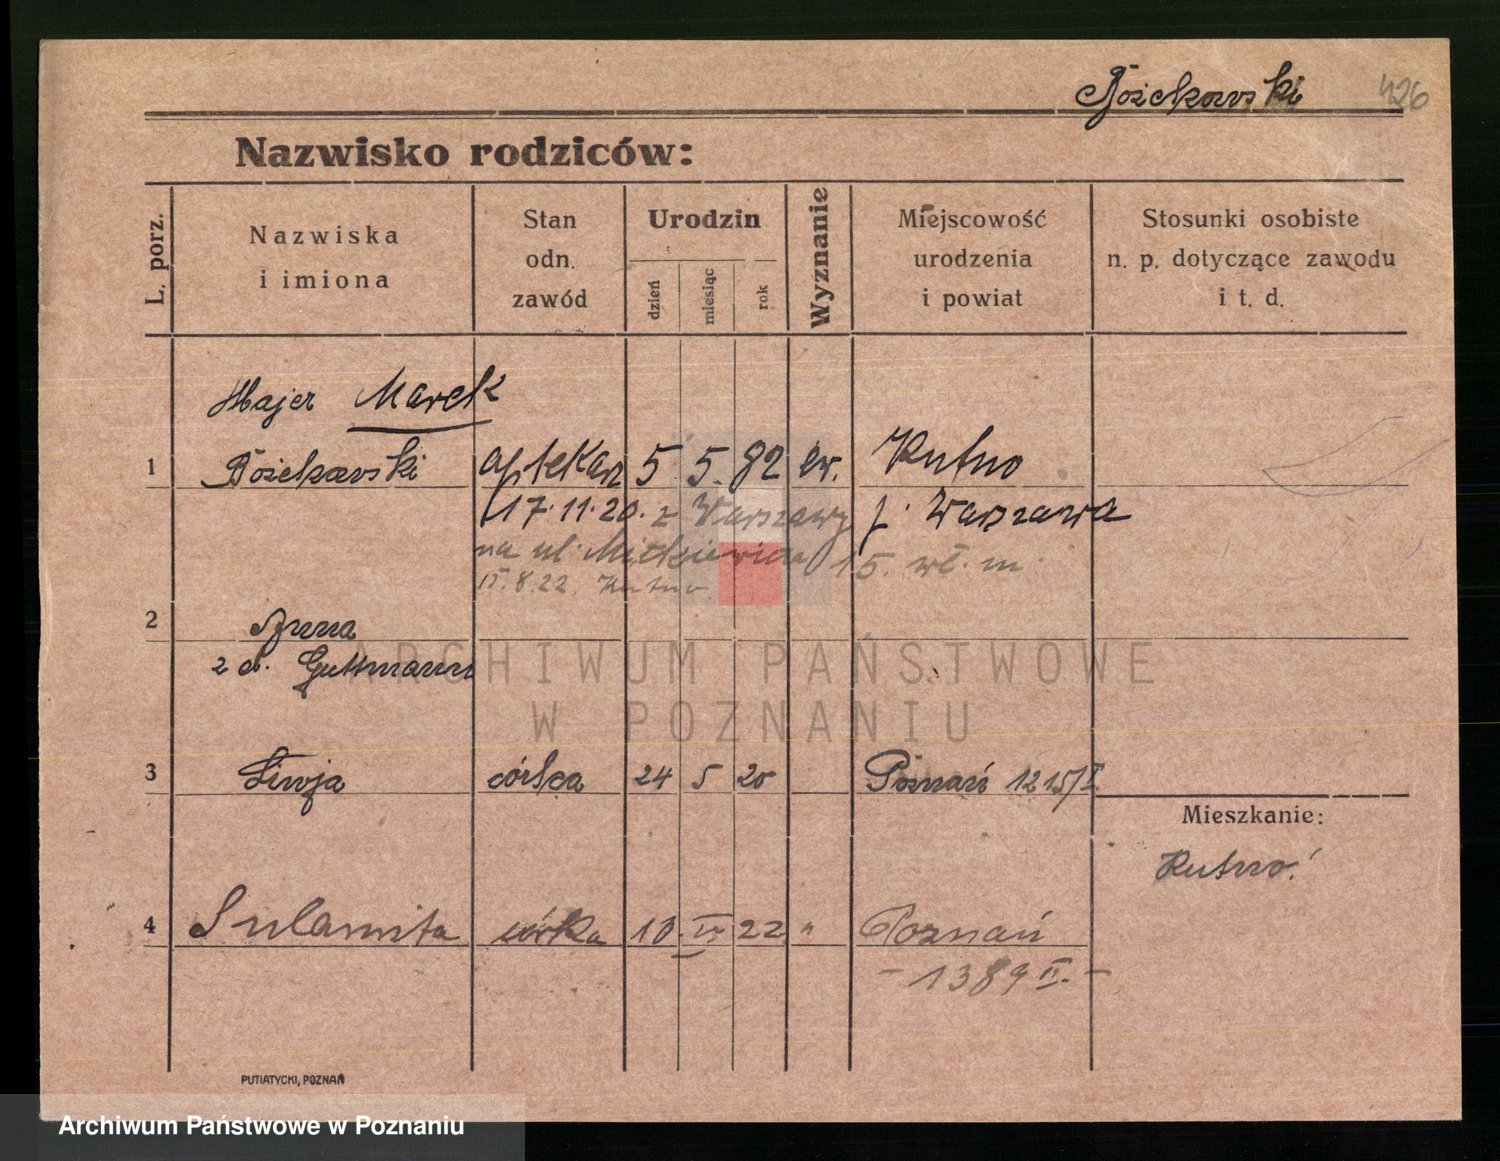 Bożekowski 426
Nazwisko rodziców:
L. porz.
Nazwiska
i imiona
Stan
odn.
zawód
Urodzin
dzień
miesiąc
rok
Wyznanie
Miejscowość
urodzenia
i powiat
Stosunki osobiste
n. p. dotyczące zawodu
i t. d.
Majer Marek
1 Bożekowski aptekarz 5 5. 82 ew. Kutno
17.11.20. z Warszawy p. Warszawa
na ul. 15. wł. m.
15.8.22. Kutno
2 Anna
z d. Guttmann
3 córka 24 5 20 Poznań 1215/I
Mieszkanie:
Kutno!
4 Sulamita córka 10. IV 22 " Poznań
- 1389 II. -
PUTIATYCKI, POZNAŃ
ARCHIWUM PAŃSTWOWE
W POZNANIU
Archiwum Państwowe w Poznaniu